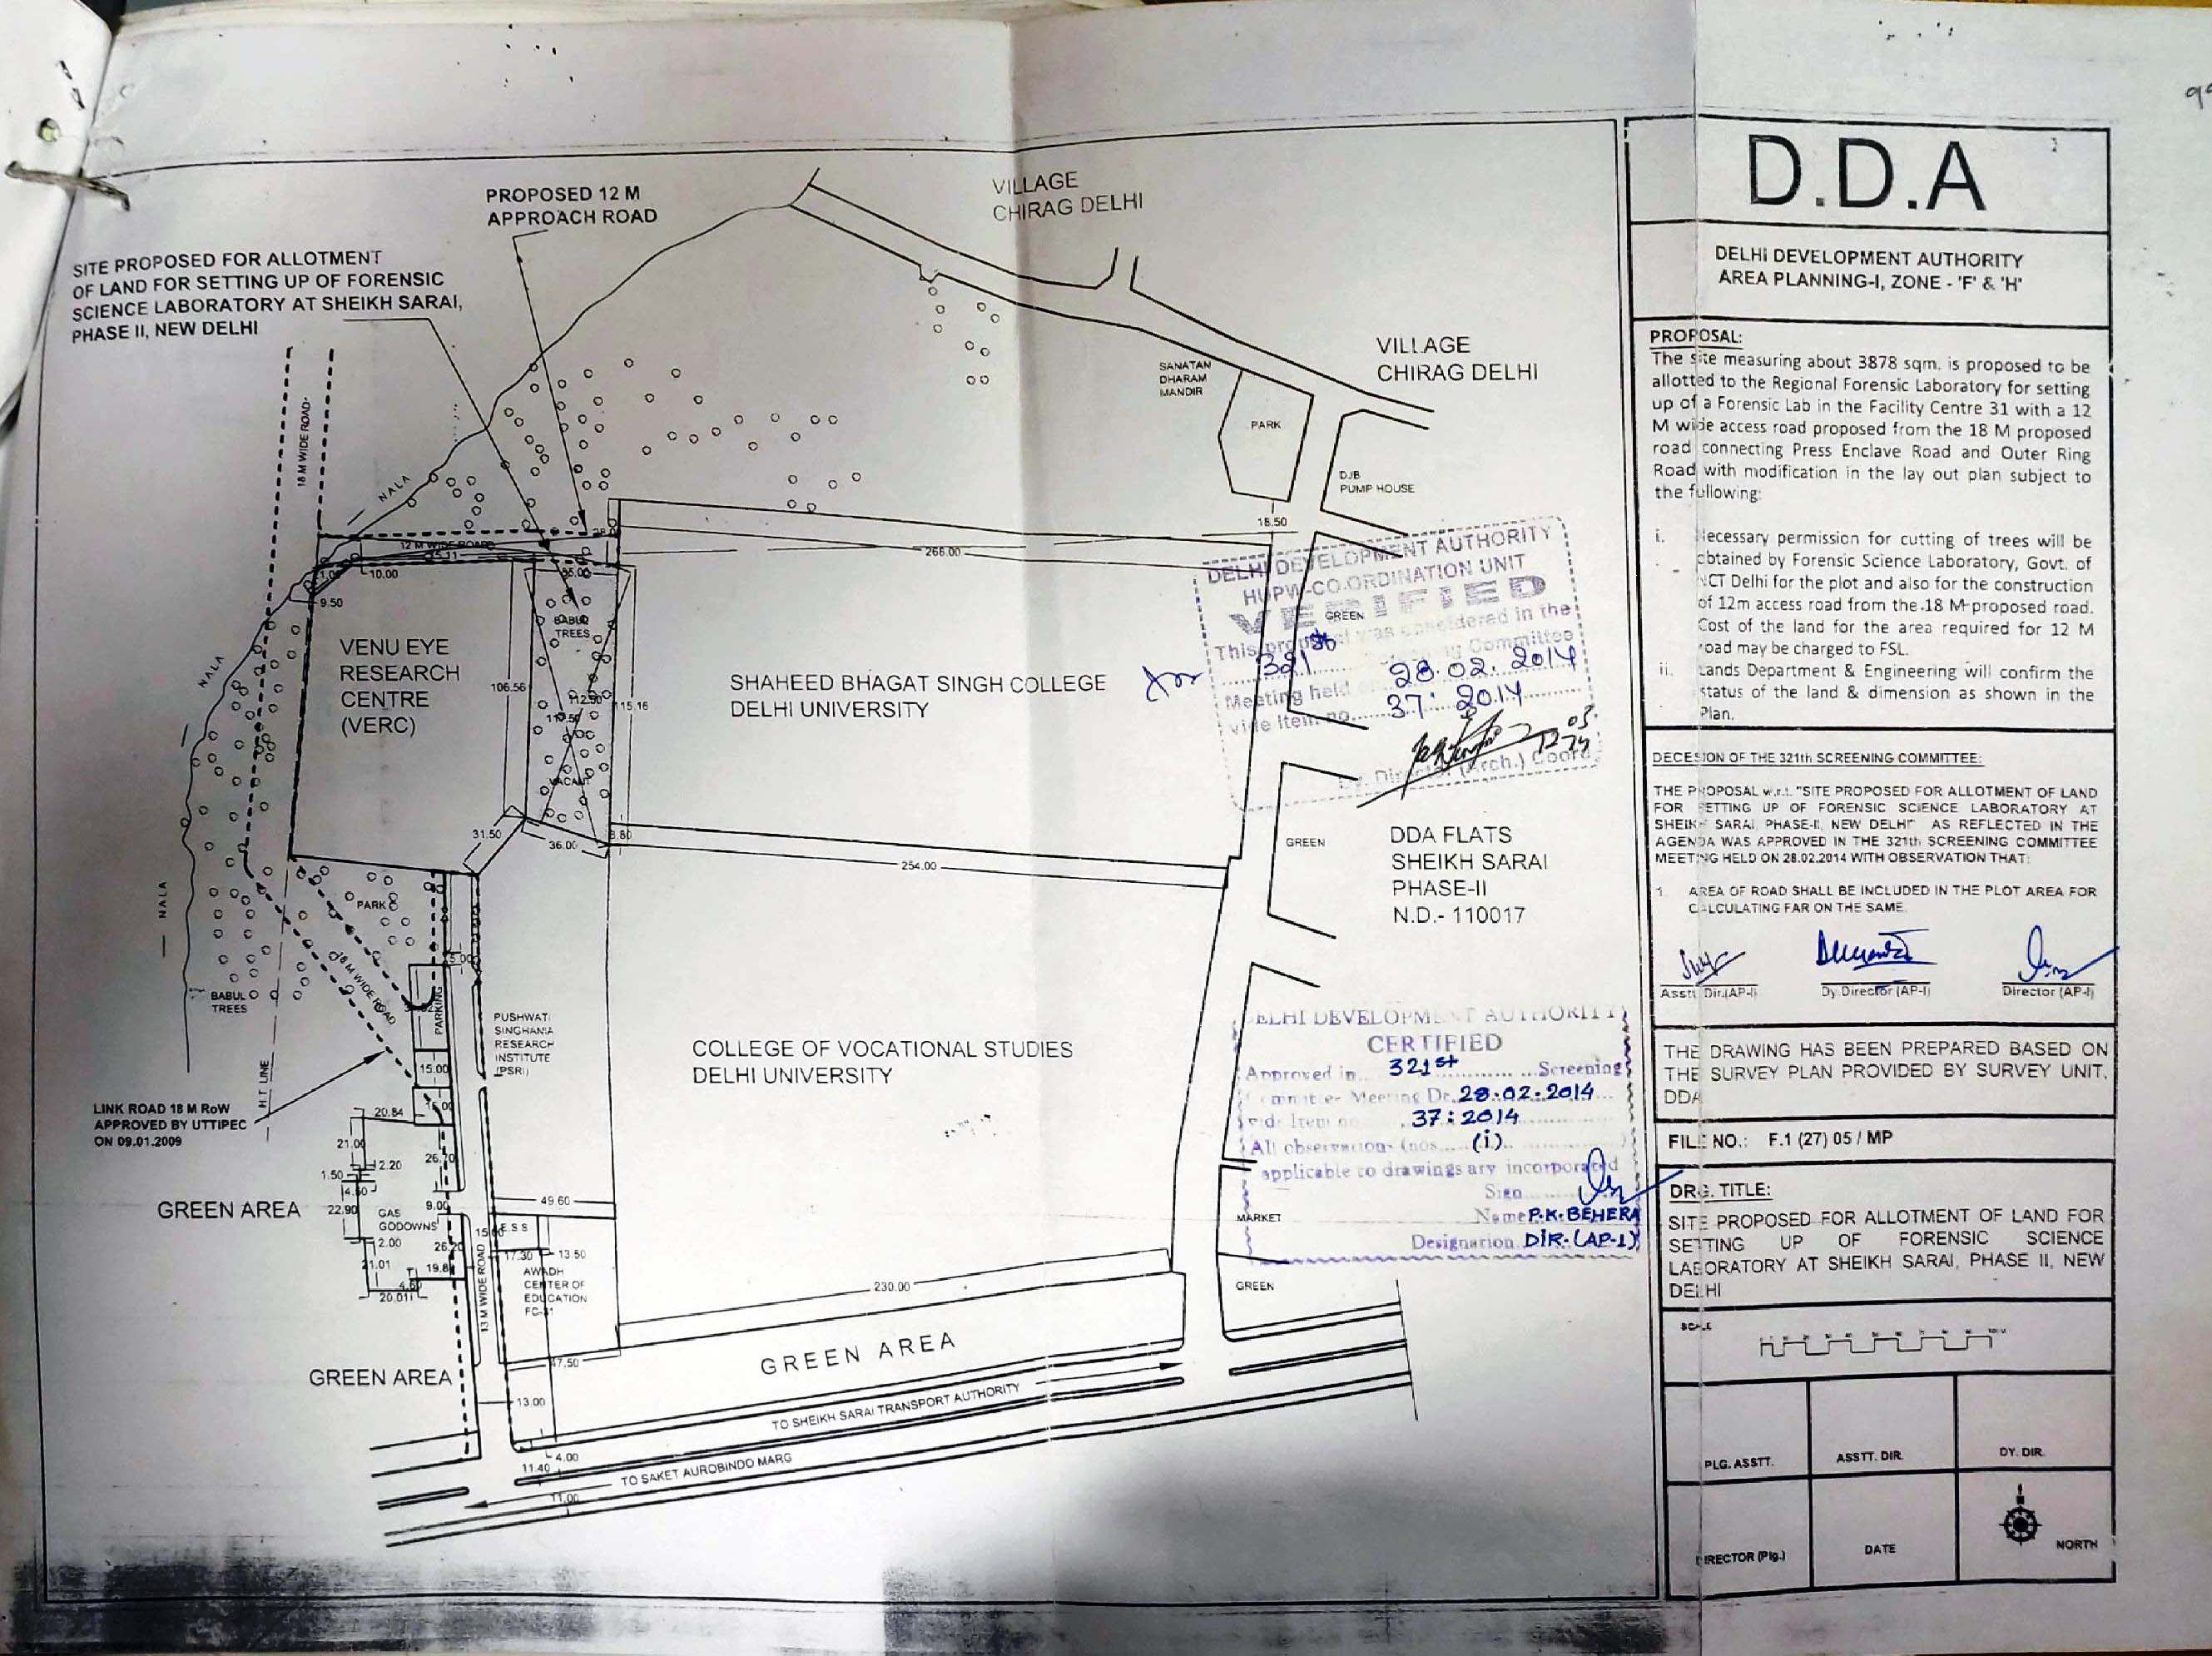 PROPOSED 12 M
APPROACH ROAD
VILLAGE
CHIRAG DELHI
SITE PROPOSED FOR ALLOTMENT
OF LAND FOR SETTING UP OF FORENSIC
SCIENCE LABORATORY AT SHEIKH SARAI,
PHASE II, NEW DELHI
18 M WIDE ROAD
NALA
SANATAN
DHARAM
MANDIR
PARK
VILLAGE
CHIRAG DELHI
DJB
PUMP HOUSE
18.50
12 M WIDE ROAD
10.00
9.50
266.00
VENU EYE
RESEARCH
CENTRE
(VERC)
BABUL
TREES
106.56
115.16
VACANT
SHAHEED BHAGAT SINGH COLLEGE
DELHI UNIVERSITY
NALA
GREEN
DELHI DEVELOPMENT AUTHORITY
HUPW-CO.ORDINATION UNIT
VERIFIED
This proposal was considered in the
321st
Meeting held 28.02.2014
vide Item no. 37:2014
Dy. Director (Arch.) Coord.
31.50
36.00
3.80
254.00
GREEN
DDA FLATS
SHEIKH SARAI
PHASE-II
N.D.- 110017
NALA
PARK
18 M WIDE ROAD
BABUL
TREES
PARKING
H.T. LINE
PUSHWATI
SINGHANIA
RESEARCH
INSTITUTE
(PSRI)
COLLEGE OF VOCATIONAL STUDIES
DELHI UNIVERSITY
15.00
LINK ROAD 18 M RoW
APPROVED BY UTTIPEC
ON 09.01.2009
20.84
21.00
2.20
1.50
26.70
22.90
9.00
GREEN AREA
GAS
GODOWNS
2.00
21.01
19.8
20.01
49.60
E.S.S
17.30
13.50
AWADH
CENTER OF
EDUCATION
FC-31
13 M WIDE ROAD
230.00
GREEN AREA
GREEN AREA
47.50
13.00
4.00
11.40
11.00
TO SHEIKH SARAI TRANSPORT AUTHORITY
TO SAKET AUROBINDO MARG
DELHI DEVELOPMENT AUTHORITY
CERTIFIED
Approved in 321st Screening
Committe- Meeting Dt. 28.02.2014
vide Item no. 37:2014
All observations (nos (i)
applicable to drawings ary incorporated
Sign
Name P.K. BEHERA
Designation DIR. (AP-1)
MARKET
GREEN
D.D.A
DELHI DEVELOPMENT AUTHORITY
AREA PLANNING-I, ZONE - 'F' & 'H'
PROPOSAL:
The site measuring about 3878 sqm. is proposed to be
allotted to the Regional Forensic Laboratory for setting
up of a Forensic Lab in the Facility Centre 31 with a 12
M wide access road proposed from the 18 M proposed
road connecting Press Enclave Road and Outer Ring
Road with modification in the lay out plan subject to
the following:
i. Necessary permission for cutting of trees will be
obtained by Forensic Science Laboratory, Govt. of
NCT Delhi for the plot and also for the construction
of 12m access road from the 18 M proposed road.
Cost of the land for the area required for 12 M
road may be charged to FSL.
ii. Lands Department & Engineering will confirm the
status of the land & dimension as shown in the
Plan.
DECESION OF THE 321th SCREENING COMMITTEE:
THE PROPOSAL w.r.t. "SITE PROPOSED FOR ALLOTMENT OF LAND
FOR SETTING UP OF FORENSIC SCIENCE LABORATORY AT
SHEIKH SARAI, PHASE-II, NEW DELHI" AS REFLECTED IN THE
AGENDA WAS APPROVED IN THE 321th SCREENING COMMITTEE
MEETING HELD ON 28.02.2014 WITH OBSERVATION THAT:
1. AREA OF ROAD SHALL BE INCLUDED IN THE PLOT AREA FOR
CALCULATING FAR ON THE SAME.
Asstt. Dir.(AP-I) Dy.Director (AP-I) Director (AP-I)
THE DRAWING HAS BEEN PREPARED BASED ON
THE SURVEY PLAN PROVIDED BY SURVEY UNIT,
DDA
FILE NO.: F.1 (27) 05 / MP
DRG. TITLE:
SITE PROPOSED FOR ALLOTMENT OF LAND FOR
SETTING UP OF FORENSIC SCIENCE
LABORATORY AT SHEIKH SARAI, PHASE II, NEW
DELHI
SCALE
PLG. ASSTT. ASSTT. DIR. DY. DIR.
DIRECTOR (Plg.) DATE NORTH